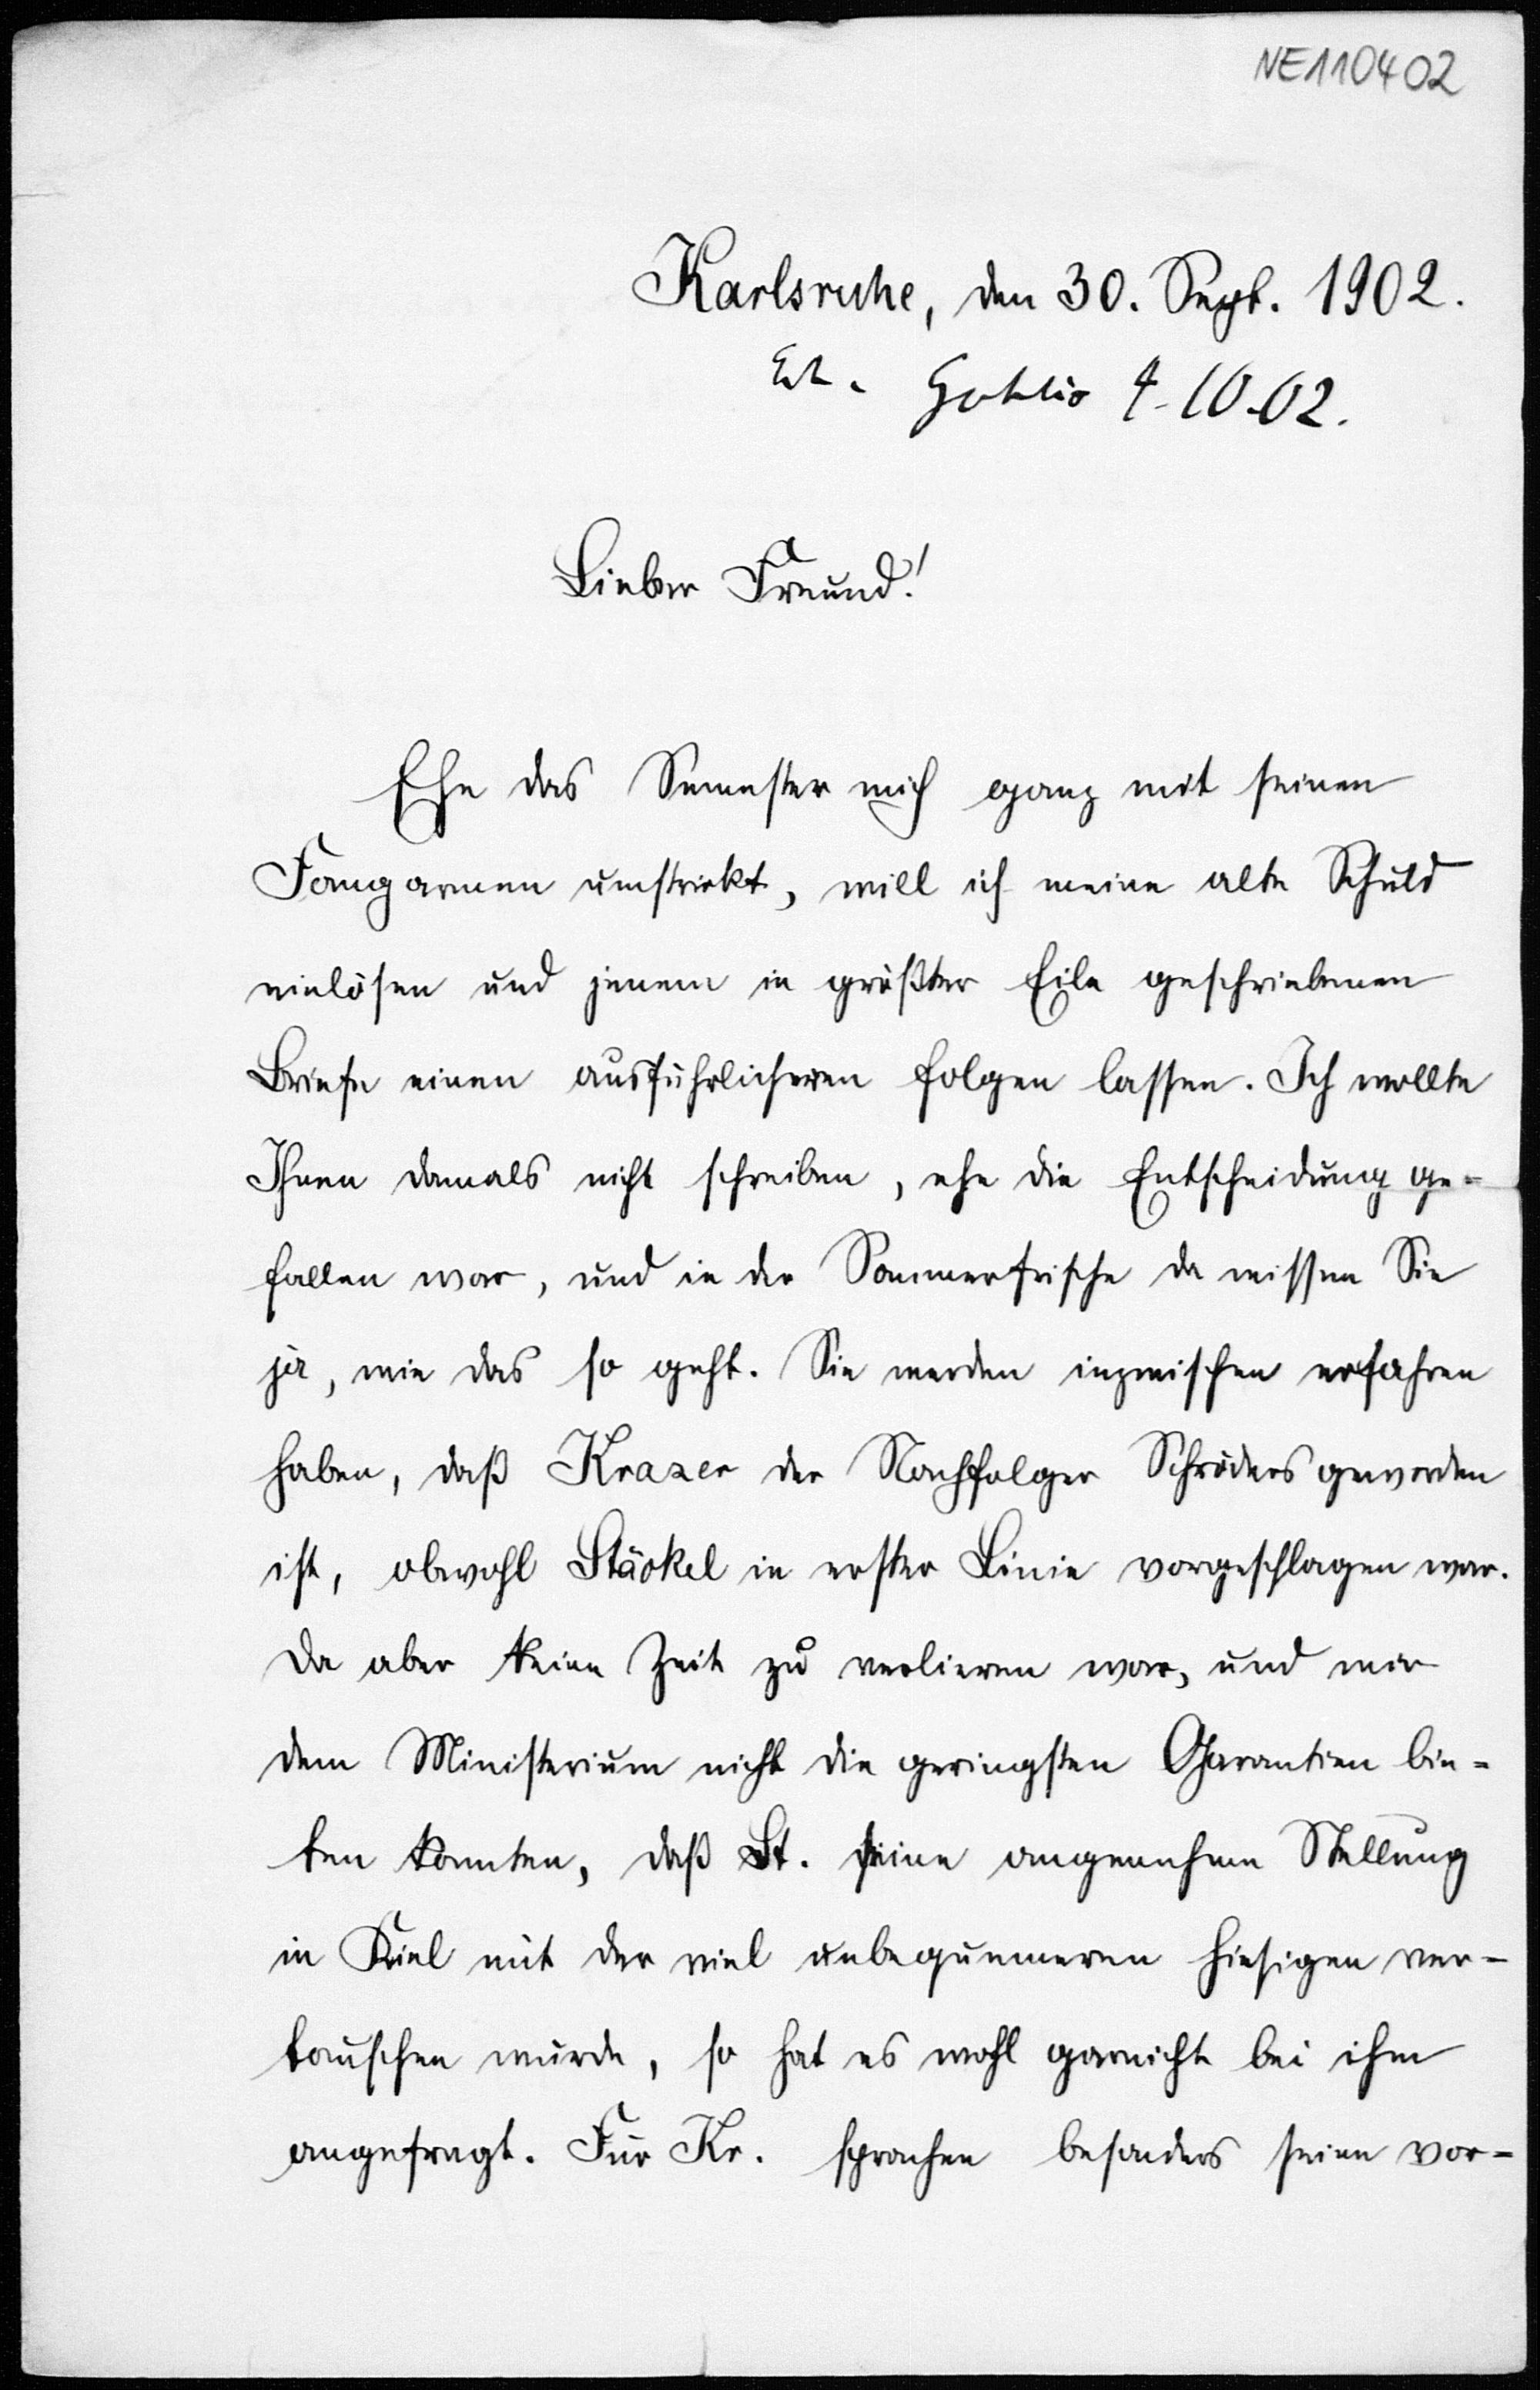 NE110402
Karlsruhe, den 30. Sept. 1902.
4.10.02.
Lieber Freund!
Ehe das Semester mich ganz mit seinen
Fangarmen umstrickt, will ich meine alte Schuld
einlösen und jenem in größter Eile geschriebenen
Briefe einen ausführlicheren folgen lassen. Ich wollte
Ihnen damals nicht schreiben, ehe die Entscheidung ge-
fallen war, und in der Sommerfrische da wissen Sie
ja, wie das so geht. Sie werden inzwischen erfahren
haben, daß Krazer der Nachfolger Schröders geworden
ist, obwohl Stäckel in erster Linie vorgeschlagen war.
Da aber keine Zeit zu verlieren war, und wir
dem Ministerium nicht die geringsten Garantien bie-
ten konnten, daß St. seine angenehme Stellung
in Kiel mit der viel unbequemeren hiesigen ver-
tauschen würde, so hat es wohl garnicht bei ihm
angefragt. Für Kr. sprachen besonders seine vor-